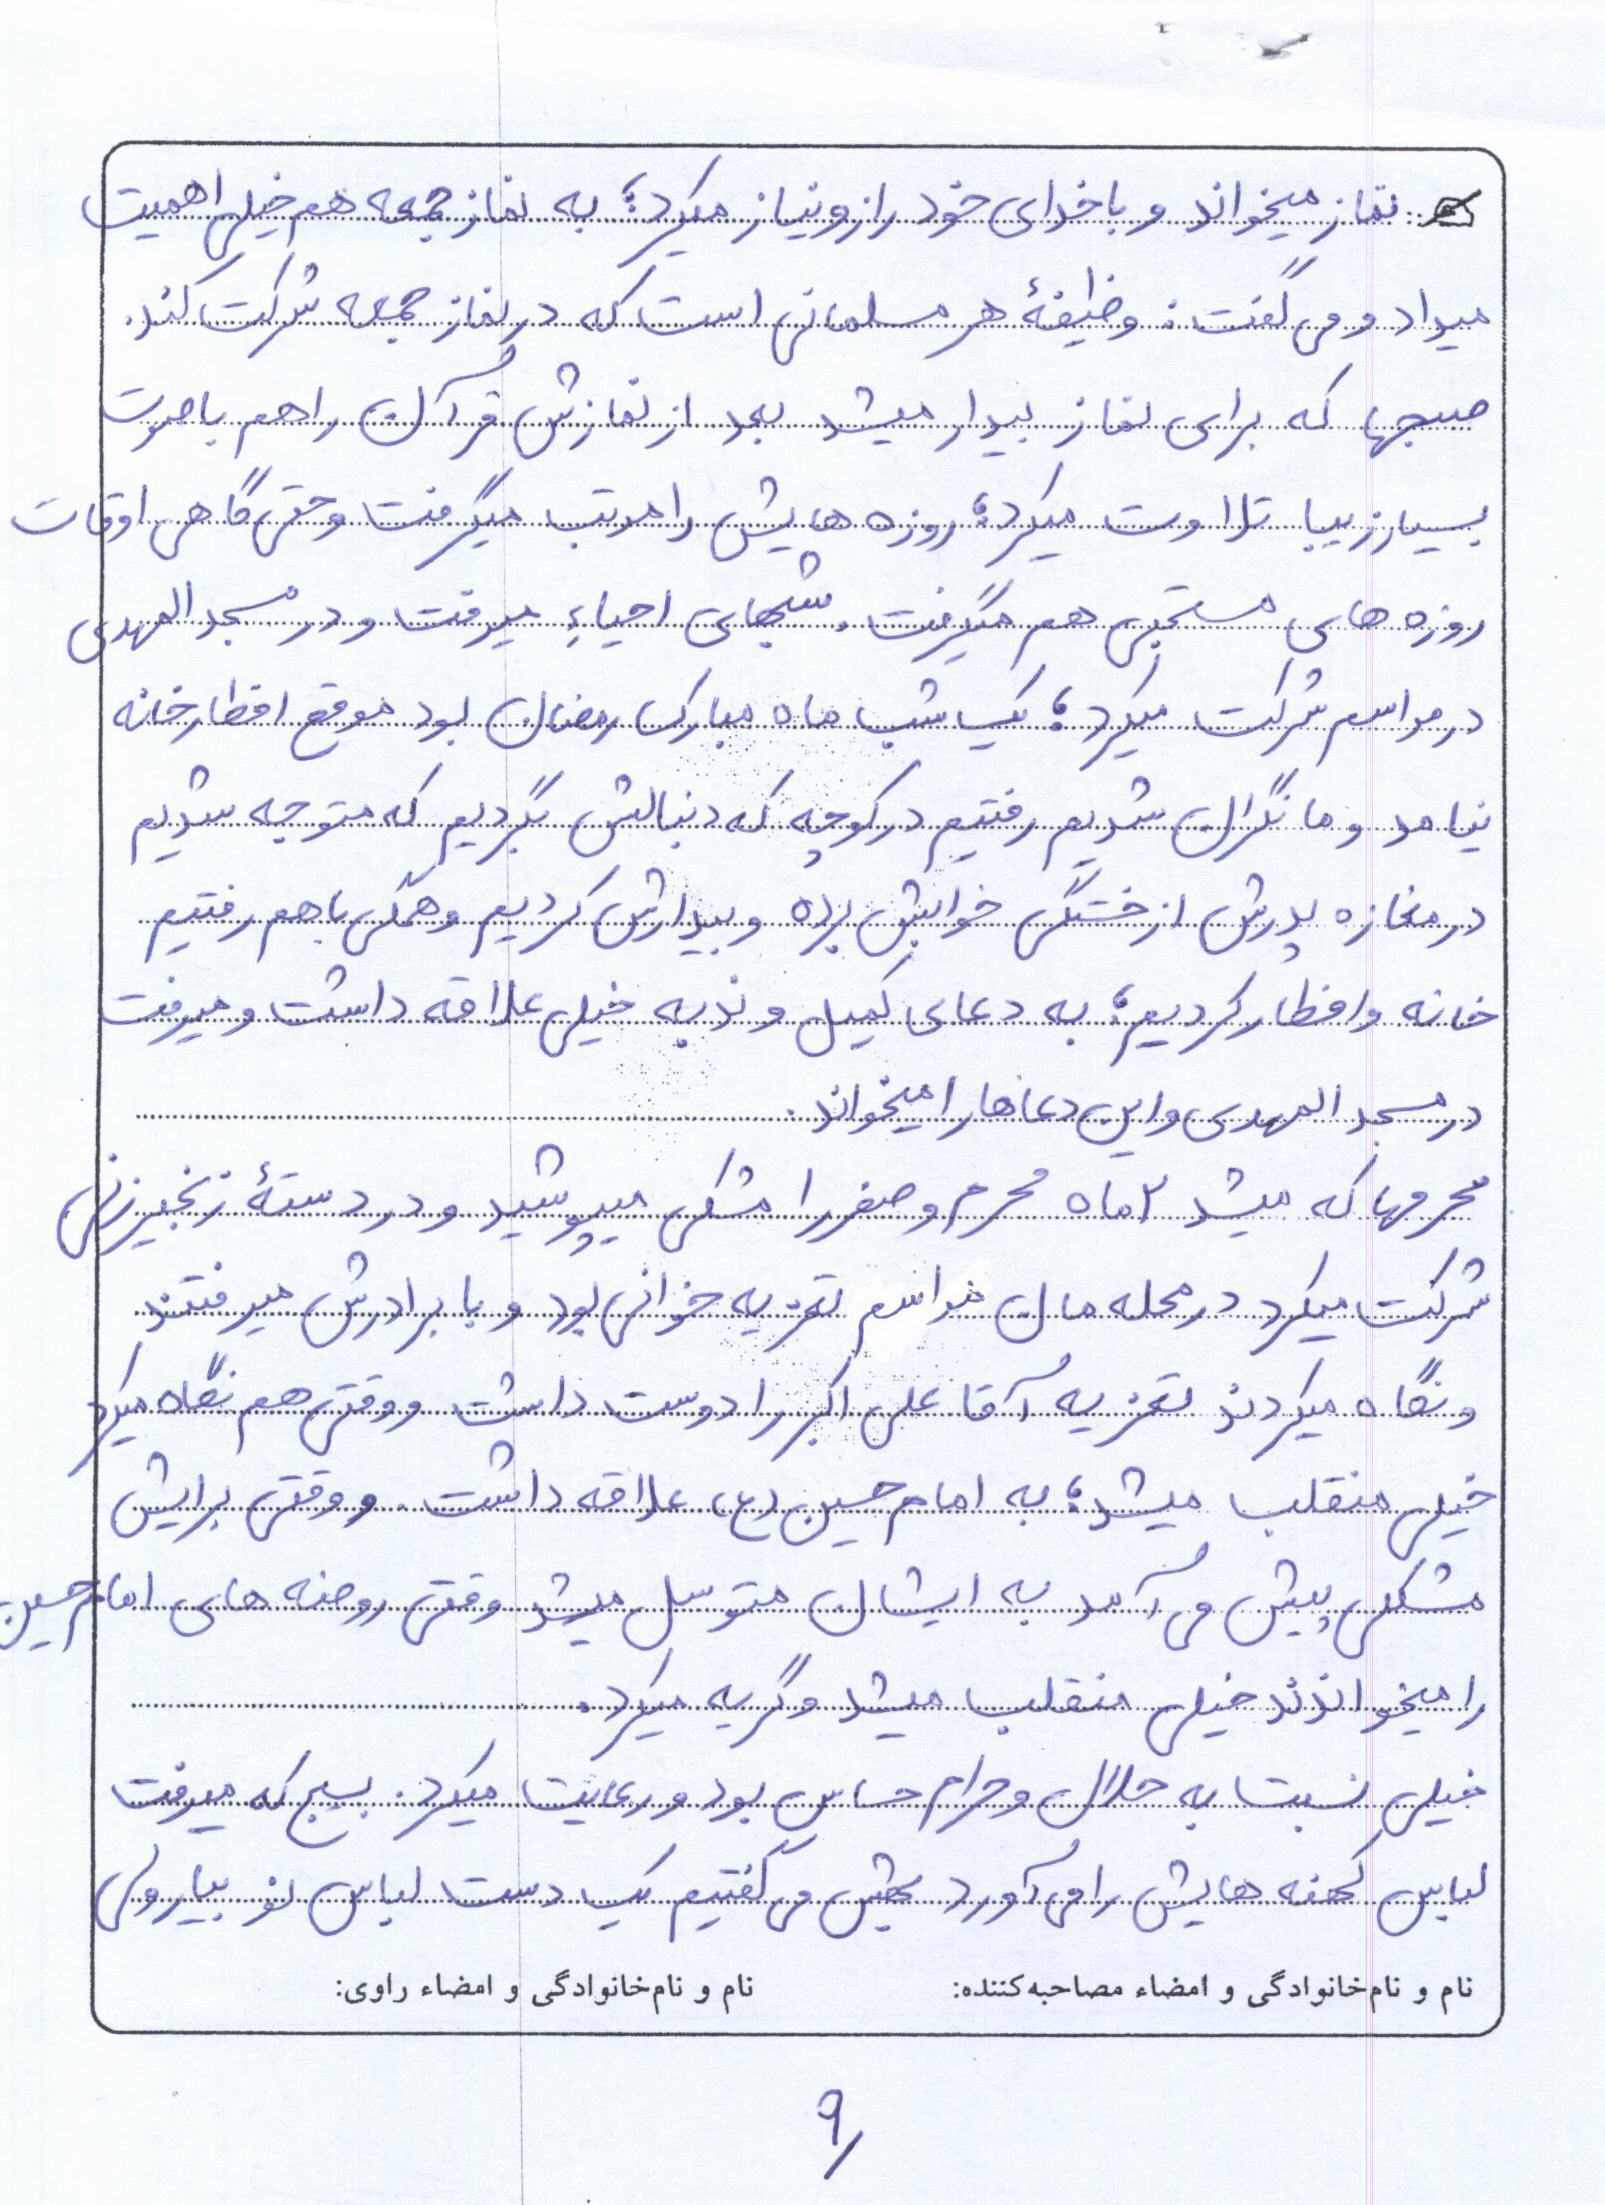 نماز میخواند و با خدای خود راز و نیاز میکرد؛ به نماز جمعه هم خیلی اهمیت
میداد و می گفت: وظیفهٔ هر مسلمانی است که در نماز جمعه شرکت کند.
صبحها که برای نماز بیدار میشد بعد از نمازش قرآن را هم با صوت
بسیار زیبا تلاوت میکرد؛ روزه هایش را مرتب میگرفت و حتی گاهی اوقات
روزه های مستحبی هم میگرفت. شبهای احیاء میرفت و در مسجد المهدی
در مراسم شرکت میکرد؛ یک شب ماه مبارک رمضان بود موقع افطار خانه
نیامد و ما نگران شدیم رفتیم در کوچه که دنبالش بگردیم که متوجه شدیم
در مغازه پدرش از خستگی خوابش برده و بیدارش کردیم و همگی با هم رفتیم
خانه و افطار کردیم؛ به دعای کمیل و ندبه خیلی علاقه داشت و میرفت
در مسجد المهدی و این دعاها را میخواند.
محرمها که میشد ۲ ماه محرم و صفر را مشکی میپوشید و در دستهٔ زنجیرزنی
شرکت میکرد در محله مان مراسم تعزیه خوانی بود و با برادرش میرفتند
و نگاه میکردند تعزیه آقا علی اکبر را دوست داشت و وقتی هم نگاه میکرد
خیلی منقلب میشد؛ به امام حسین (ع) علاقه داشت. و وقتی برایش
مشکلی پیش می آمد به ایشان متوسل میشد وقتی روضه های امام حسین
را میخواندند خیلی منقلب میشد و گریه میکرد.
خیلی نسبت به حلال و حرام حساس بود و رعایت میکرد. بسیج که میرفت
لباس کهنه هایش را می آورد بهش می گفتیم یک دست لباس نو بیار ولی
نام و نام‌خانوادگی و امضاء مصاحبه‌کننده: نام و نام‌خانوادگی و امضاء راوی:
۹/